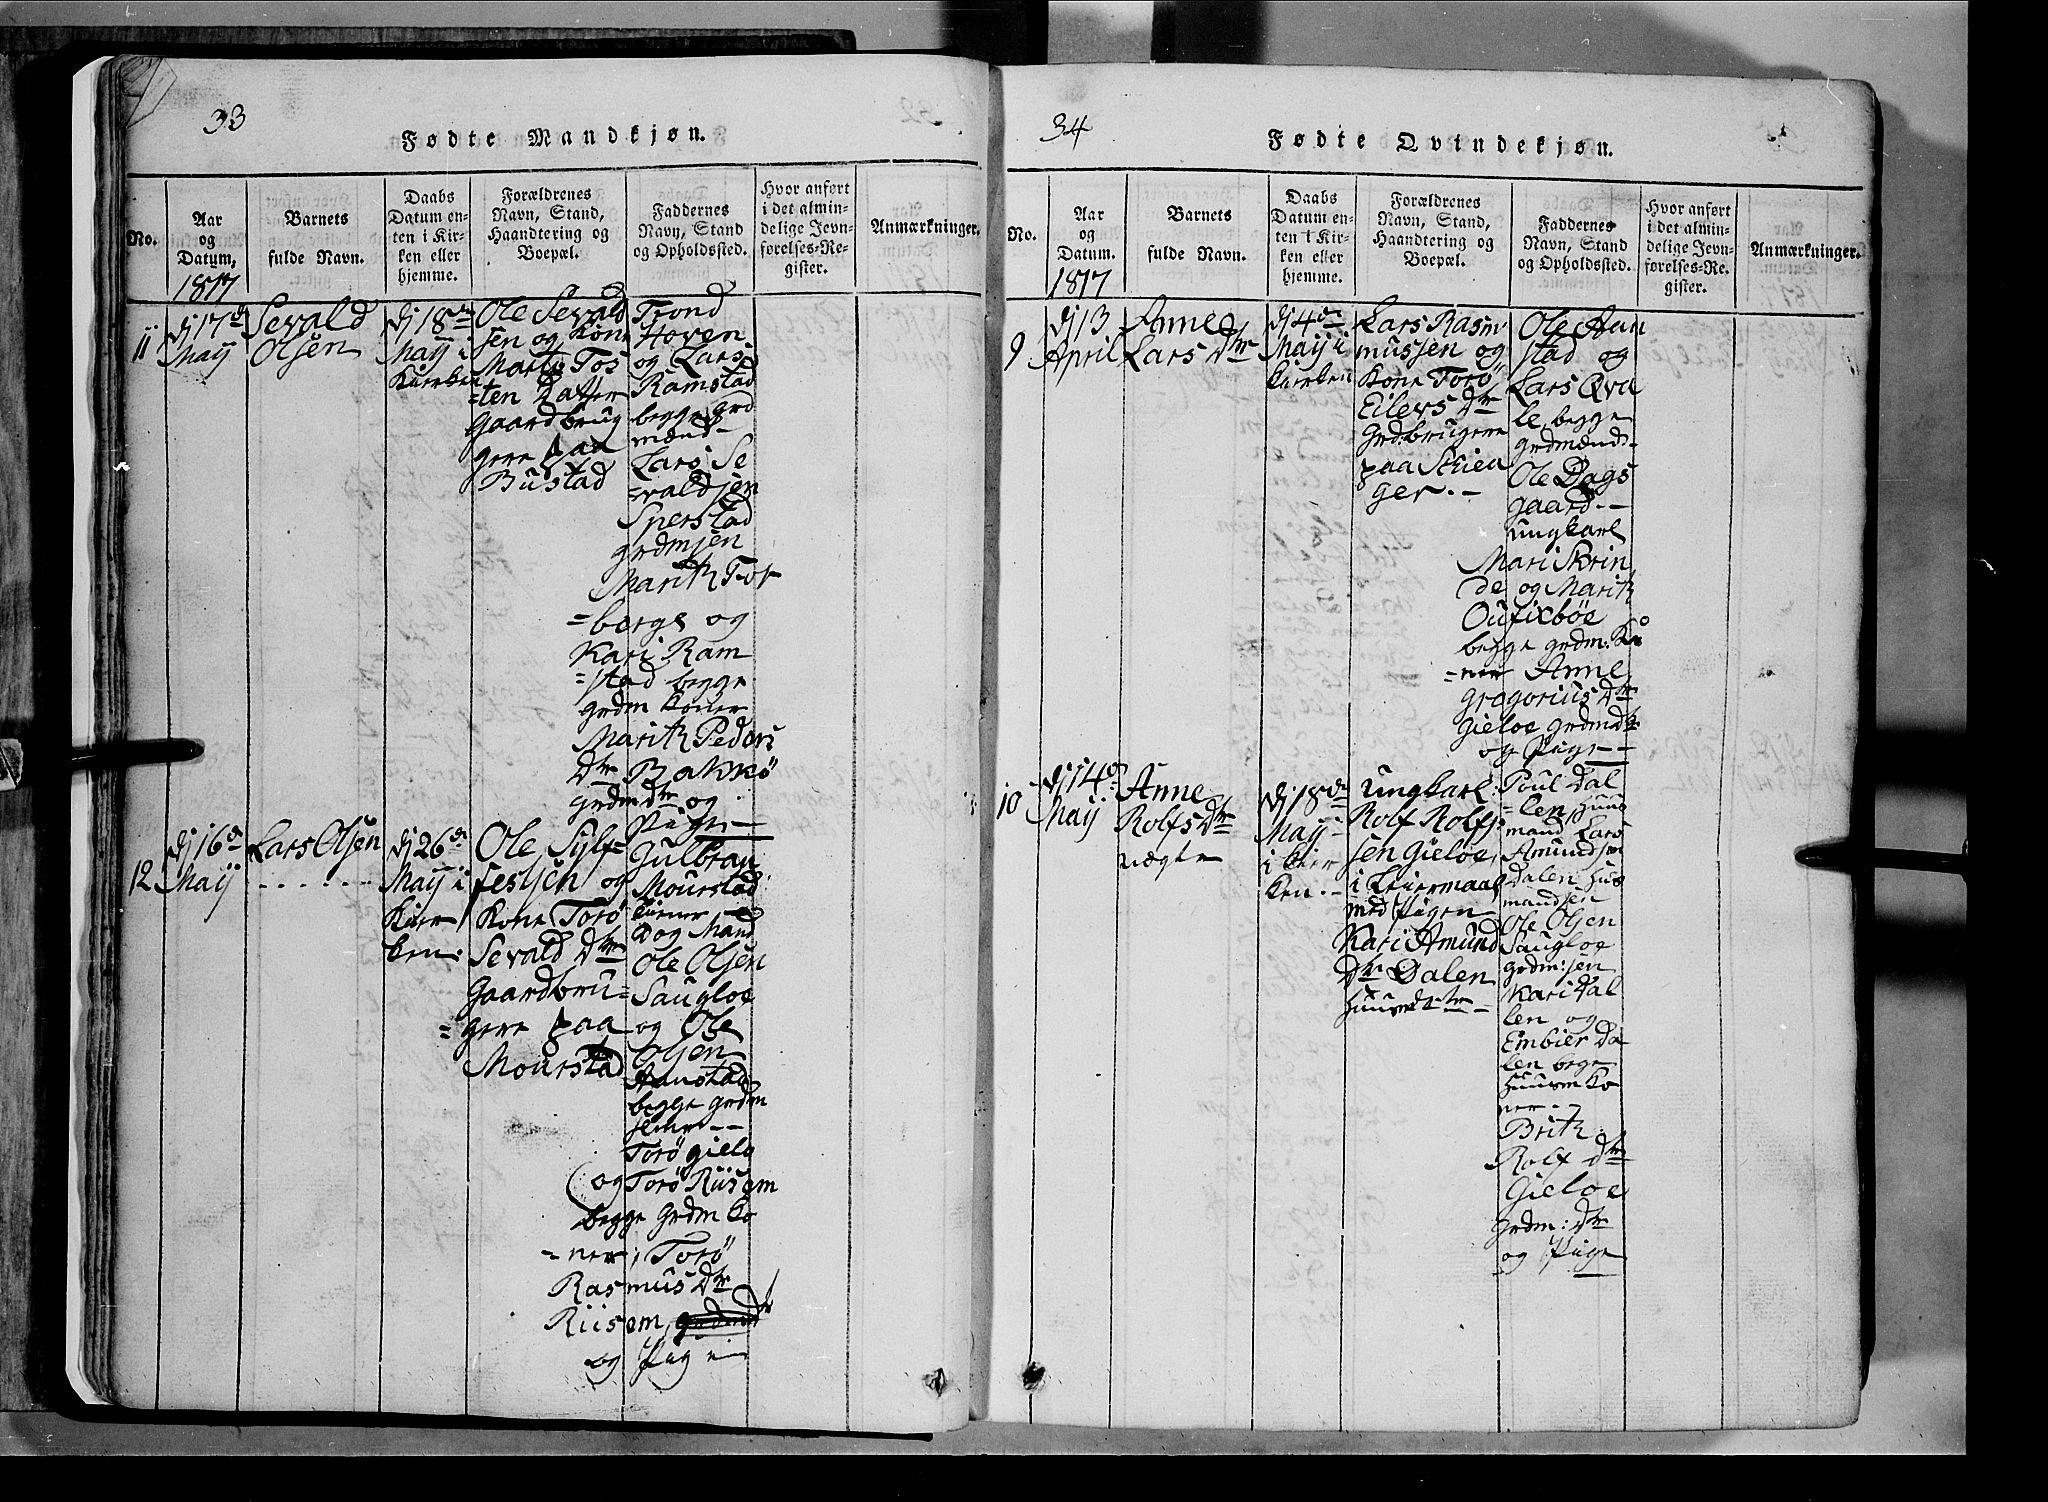 33
Fødte Mandkjøn.
No.
Aar
og
Datum,
1817
Barnets
fulde Navn.
Daabs
Datum en-
ten i Kir-
ken eller
hjemme.
Forældrenes
Navn, Stand,
Haandtering og
Boepæl.
Faddernes
Navn, Stand
og Opholdssted.
Hvor anført
i det almin-
delige Jevn-
førelses-Re-
gister.
Anmærkninger.
11
Dj 17de
Maÿ
Sevald
Olsen
Dj 18de
Maÿ i
Kierken
Ole Sevald
sen og Kone
Marte Tos
=ten Datter
Gaardbrug
gere paa
Bustad
Trond
Hoven
og Lars
Ramstad
begge Grd
mænd-
Lars Se
=valdsen
Sperstad
grdmsen
Marith Tor
=bergs og
Kari Ram
=stad begge
grdm koner
Marith Peders
Dtr Bakkö
grdm dtr og
Pige-
12
Dj 16de
Maÿ
Lars Olsen
Dj 26de
Maÿ i
Kier
ken.
Ole Sylf=
festsen og
Kone Torö
Sevald Dtr
Gaardbru=
=gere paa
Mourstad
Julbran
Mourstad
Dog Mand
Ole Olsen
Saugloe
og Ole
Olsen
Aaustad
begge grdm
Torö Gielo
og Torö Riisem
begge Grdm ko
=ner, Torö
Rasmus Dtr
Riisem
og Pige
34
Fødte Qvindekjøn.
No.
Aar
og
Datum.
1817
Barnets
fulde Navn.
Daabs
Datum en-
ten i Kir-
ken eller
hjemme.
Forældrenes
Navn, Stand,
Haandtering og
Boepæl.
Faddernes
Navn, Stand
og Opholdssted.
Hvor anført
i det almin-
delige Jevn-
førelses-Re-
gister.
Anmærkninger.
9
Dj 13
April
Anne
Lars Dtr
Dj 4de
Maÿ i
Kierken
Lars Rasm
mussen og
Kone Torö
Eilevs Dtr
Grd:brugere
paa Skiea
ger.-
Ole Aau
stad og
Lars Qva
le begge
grdmænd-
Ole Dags
gaard--
ungkarl
Mari Skrin
de og Marith
Oufixböe
begge grdm: Ko
=ner Anne
Gregorius Dtr
Gieloe grdm dtr
og Pige--
10
Dj 14de
Maÿ
Anne
Rolfs Dtr
uægte
Dj 18de
Maÿ
i kier
ken.-
Ungkarl:
Rolf Rolfs
sen Gieloe,
i Leiermaal
med Pigen
Kari Amund
Dtr Dalen
huusmdtr-
Poul Dal
=len, huus
mand Lars
Amundsen
Dalen hus
mandsen
Ole Olsen
Saugloe
Grdm:sen
Kari Dal
len og
Embier Da
len bege
huusm Ko
ner--
Brith
Rolf Dtr
Gieloe
Grdm: Dtr
og Pige